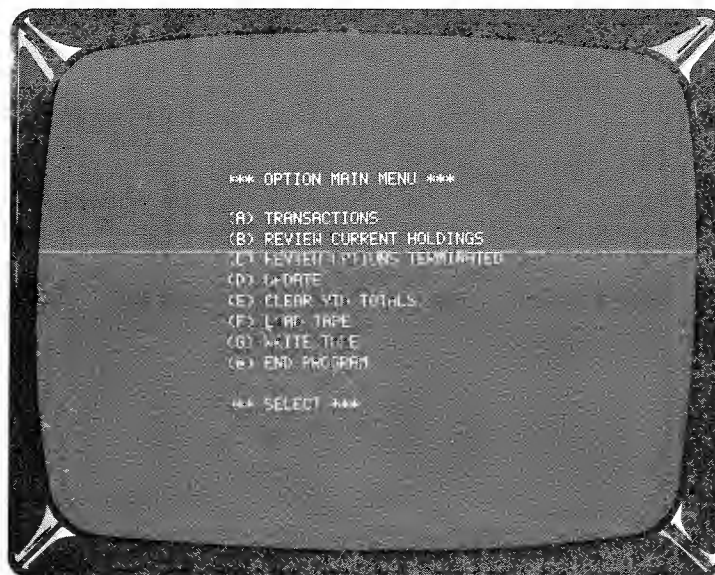 *** OPTION MAIN MENU ***
(A) TRANSACTIONS
(B) REVIEW CURRENT HOLDINGS
(C) REVIEW OPTIONS TERMINATED
(D) UPDATE
(E) CLEAR YTD TOTALS
(F) LOAD TAPE
(G) WRITE TAPE
(@) END PROGRAM
*** SELECT ***